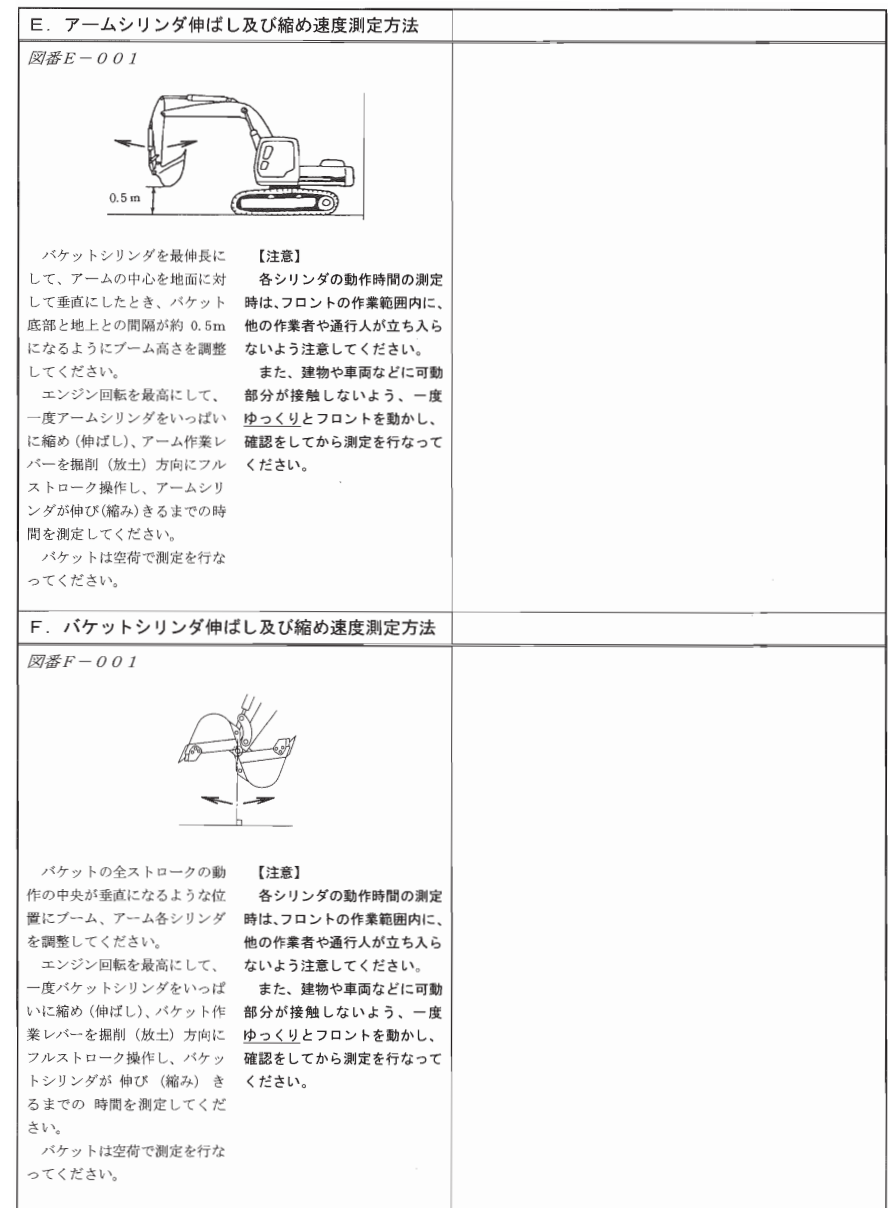 E．アームシリンダ伸ばし及び縮め速度測定方法
図番E－001
0.5 m
　バケットシリンダを最伸長に
して、アームの中心を地面に対
して垂直にしたとき、バケット
底部と地上との間隔が約 0.5m
になるようにブーム高さを調整
してください。
　エンジン回転を最高にして、
一度アームシリンダをいっぱい
に縮め（伸ばし）、アーム作業レ
バーを掘削（放土）方向にフル
ストローク操作し、アームシリ
ンダが伸び（縮み）きるまでの時
間を測定してください。
　バケットは空荷で測定を行な
ってください。
【注意】
　各シリンダの動作時間の測定
時は、フロントの作業範囲内に、
他の作業者や通行人が立ち入ら
ないよう注意してください。
　また、建物や車両などに可動
部分が接触しないよう、一度
ゆっくりとフロントを動かし、
確認をしてから測定を行なって
ください。
F．バケットシリンダ伸ばし及び縮め速度測定方法
図番F－001
　バケットの全ストロークの動
作の中央が垂直になるような位
置にブーム、アーム各シリンダ
を調整してください。
　エンジン回転を最高にして、
一度バケットシリンダをいっぱ
いに縮め（伸ばし）、バケット作
業レバーを掘削（放土）方向に
フルストローク操作し、バケッ
トシリンダが 伸び （縮み） き
るまでの 時間を測定してくだ
さい。
　バケットは空荷で測定を行な
ってください。
【注意】
　各シリンダの動作時間の測定
時は、フロントの作業範囲内に、
他の作業者や通行人が立ち入ら
ないよう注意してください。
　また、建物や車両などに可動
部分が接触しないよう、一度
ゆっくりとフロントを動かし、
確認をしてから測定を行なって
ください。